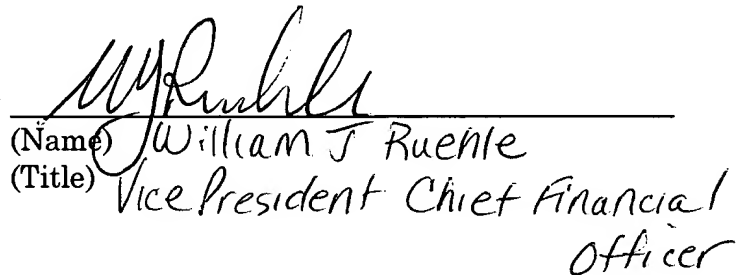 WJRuehle
(Name) William J Ruehle
(Title) Vice President Chief Financial
Officer